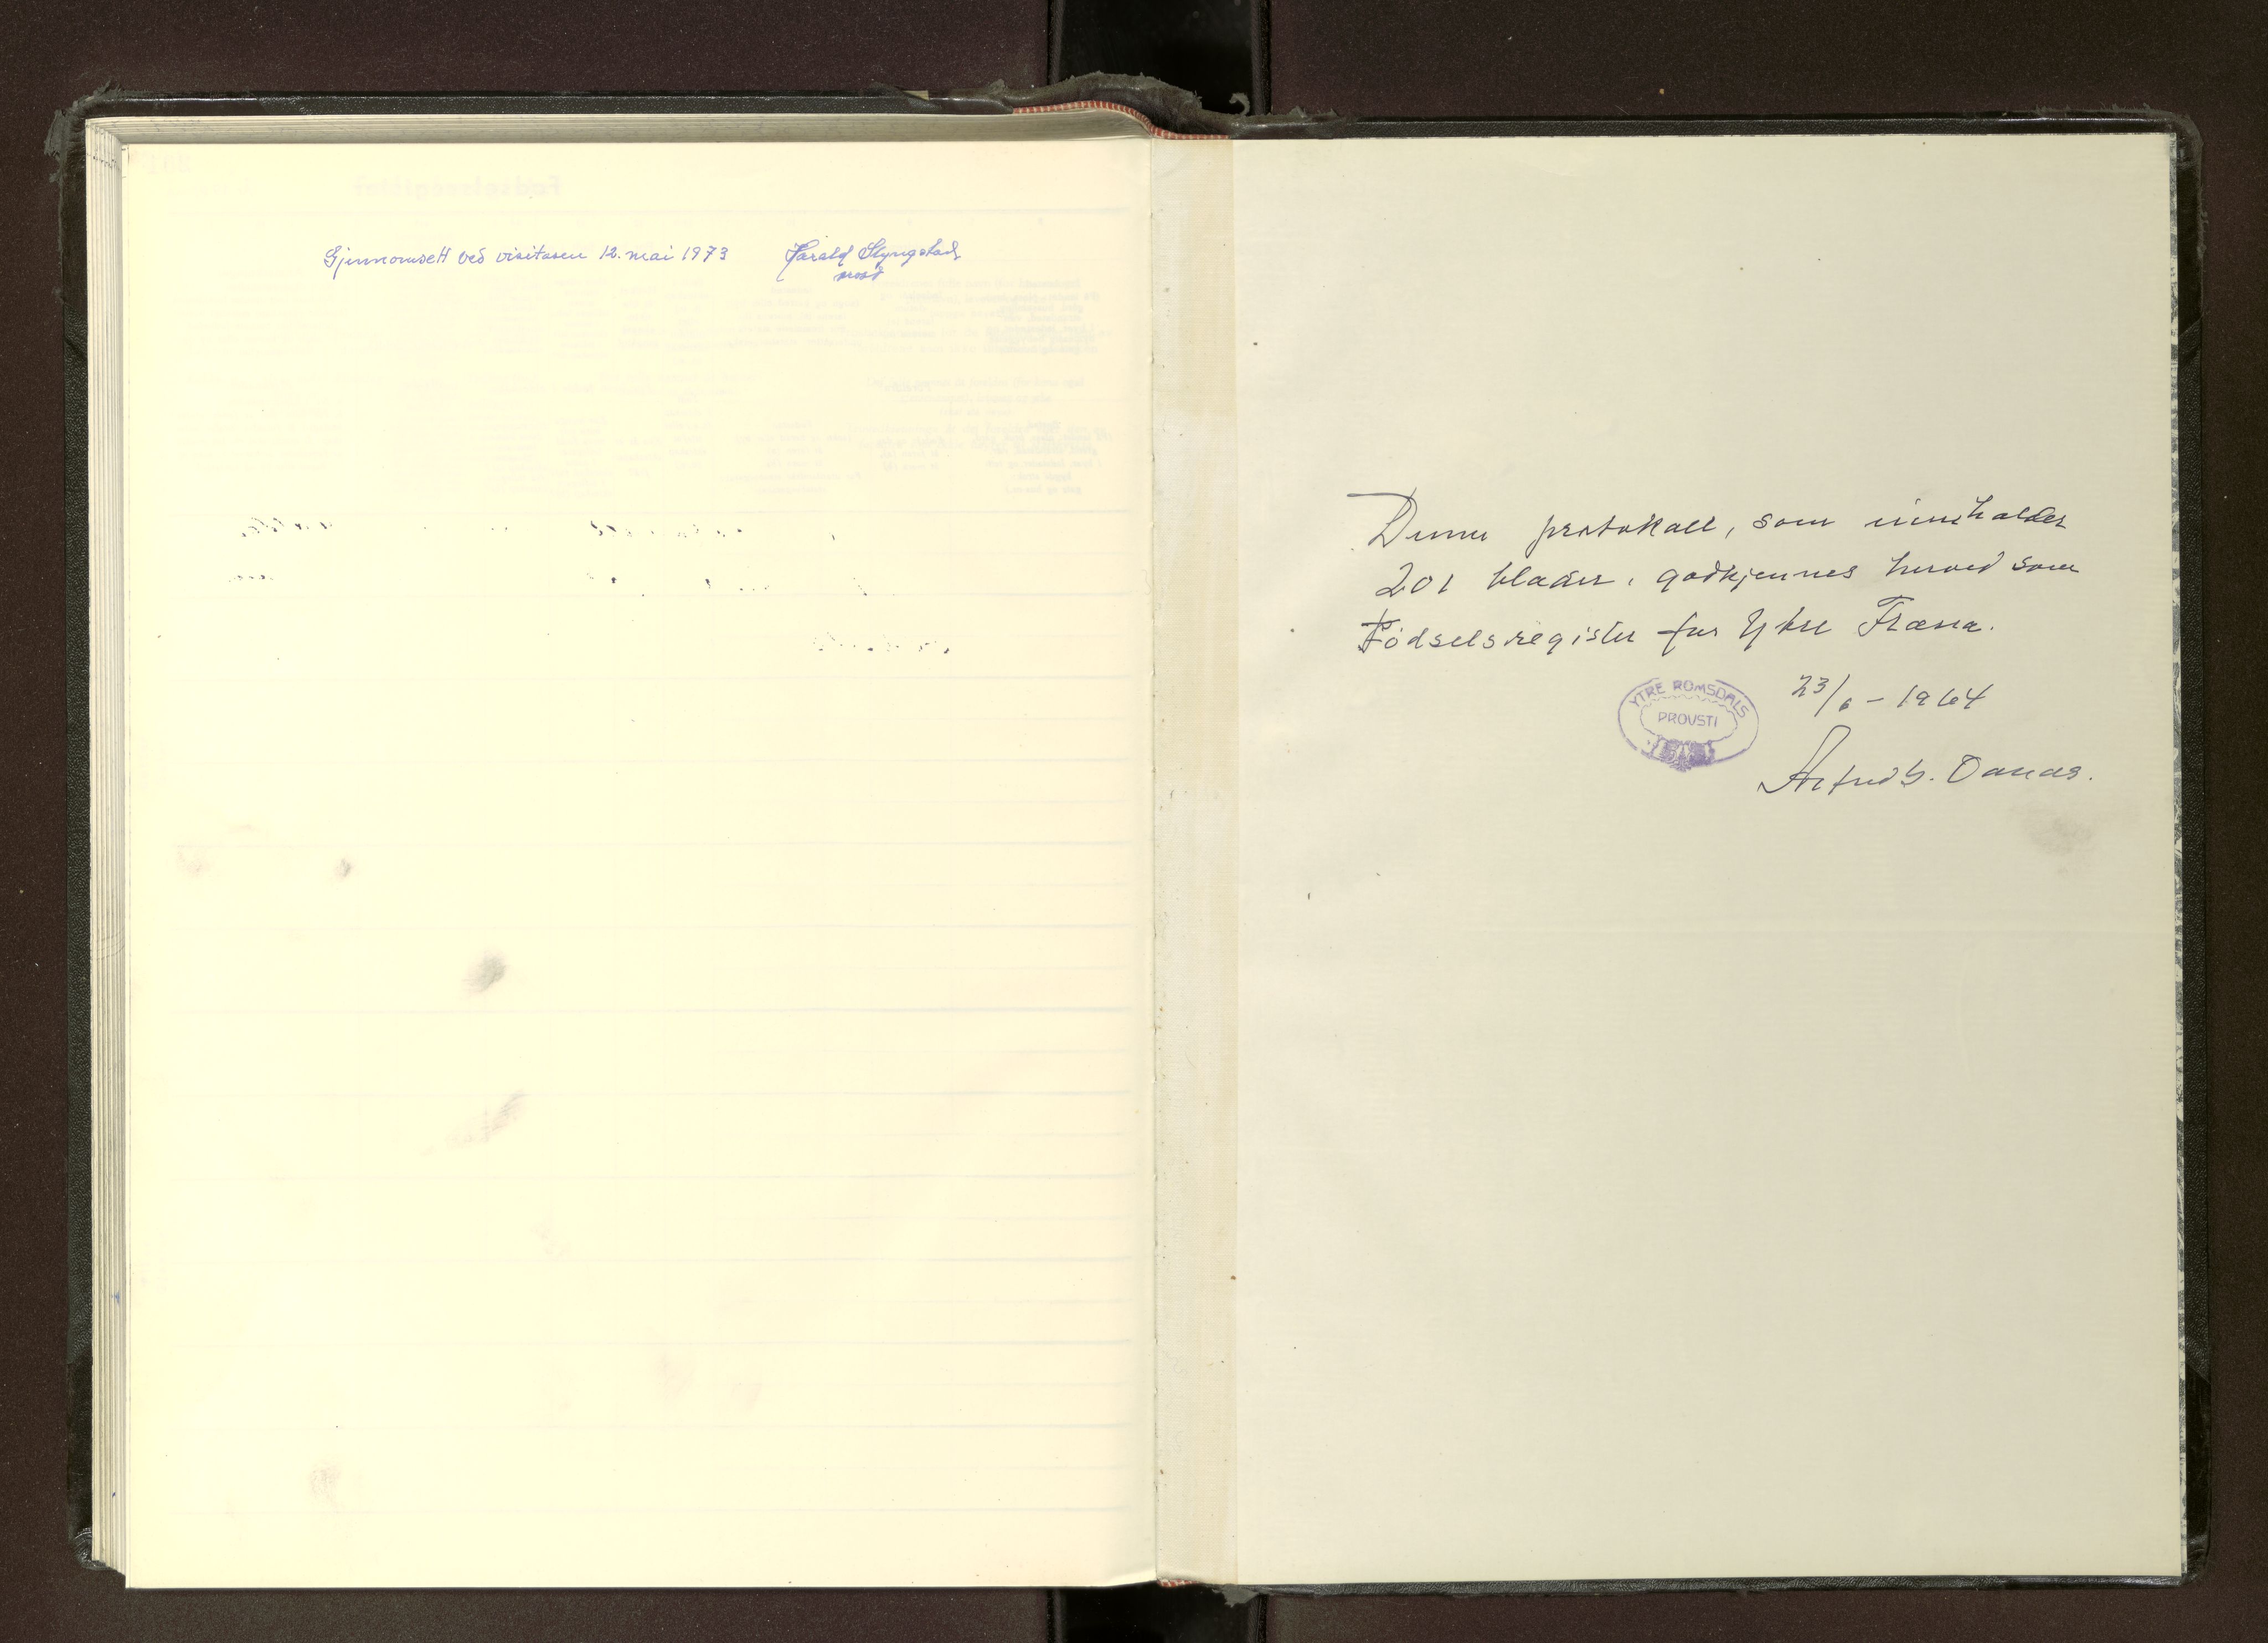 Gjennomsett ved visitasen 12. mai 1973 Harald Slyngstad
prost
Denne protokoll, som inneholder
201 blader, godkjennes herved som
Fødselsregister for Ytre Fræna.
23/6 - 1964
YTRE ROMSDALS
PROVSTI